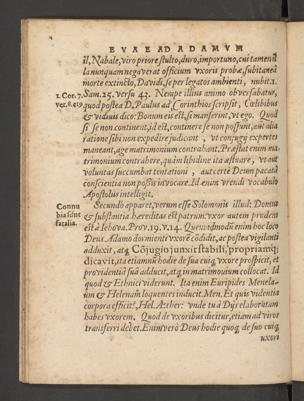 EVAE AD ADAMVM
il, Nabale, viro priore stulto, duro, importuno, cui tamen il
la nunquam negaverat officium vxoris probæ, subitanea
morte extincto, Davidi, se per legatos ambienti, nubit. 1.
1. Cor. 7. Sam. 25. versu 43. Nempe illius animo obversabatur,
ver. 8. & 19 quod postea D. Paulus ad Corinthios scripsit, Cœlibus
& viduis dico: Bonum eis est, si manserint, vt ego. Quod
si se non continent, id est, continere se non possunt, aut alia
ratione sibi non expedire judicant, vt conjugij expertes
maneant, age matrimonium contrahant. Præstat enim ma
trimonium contrahere, quàm libidine ita æstuare, vt aut
voluntas succumbat tentationi, aut certe Deum pacatâ
conscientia non possis invocare. Id enim vrendi vocabulo
Apostolus intelligit.
Connu Secundò apparet, verum esse Solomonis illud: Domus
bia sunt & substantia hæreditas est patrum: vxor autem prudens
fatalia. est à Iehova. Prov. 19. v. 14. Quemadmodum enim hoc loco
Deus Adamo dormienti vxorē cōdidit, ac postea vigilanti
adduxit, atq; Cōjugio junxit stabili, propriamq;
dicavit, ita etiamnū hodie de sua cuiq; vxore prospicit, et
providentiâ suâ adducit, atq; in matrimonium collocat. Id
quod & Ethnici viderunt. Ita enim Euripides Menela-
um & Helenam loquentes inducit. Men. Et quis videntia
corpora efficit? Hel. Æther: unde tu à Dijs elaboratam
habes vxorem. Quod de vxoribus dicitur, etiam ad viros
transferri debet. Enimverò Deus hodie quoq; de suo cuiq;
uxori